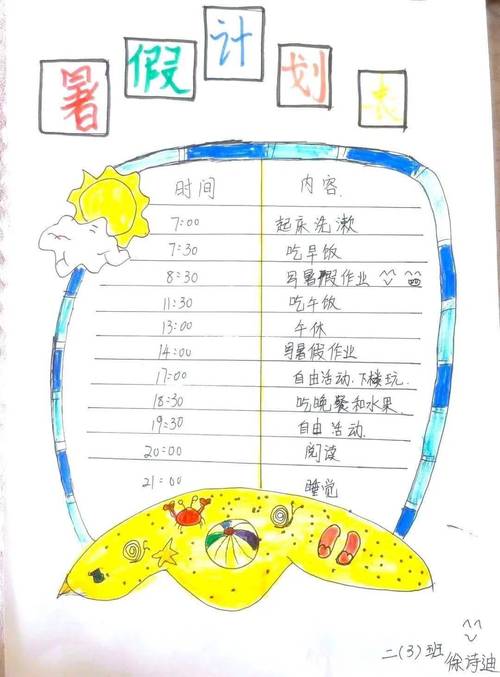 暑假计划表
时间 内容
7:00 起床洗漱
7:30 吃早饭
8:30 写暑假作业
11:30 吃午饭
13:00 午休
14:00 写暑假作业
17:00 自由活动.下楼玩.
18:30 吃晚餐和水果
19:30 自由活动.
20:00 阅读
21:00 睡觉
二(3)班
徐诗迪